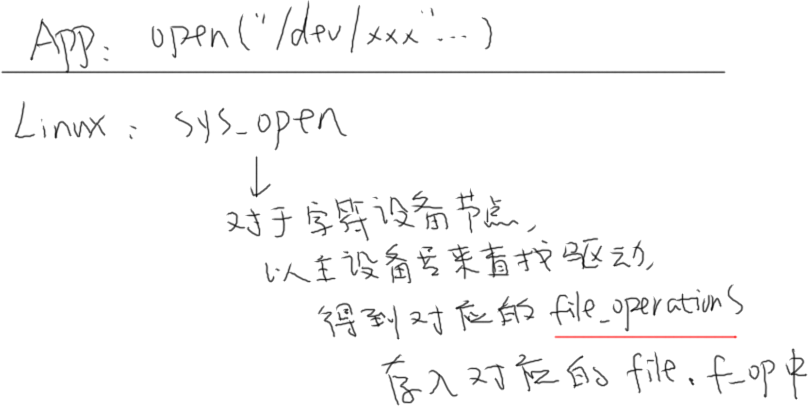 App: open("/dev/xxx"...)
Linux: sys_open
对于字符设备节点,
以主设备号来查找驱动,
得到对应的file_operations
存入对应的file.f_op中